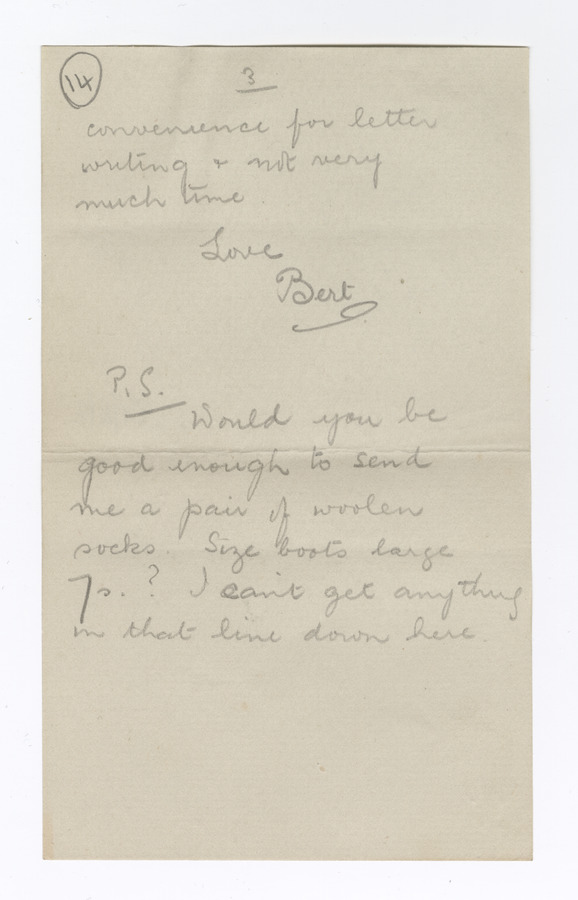 14
3
convenience for letter
writing & not very
much time.
Love
Bert
P.S.
Would you be
good enough to send
me a pair of woolen
socks. Size boots large
7s.? I can't get anything
in that line down here.